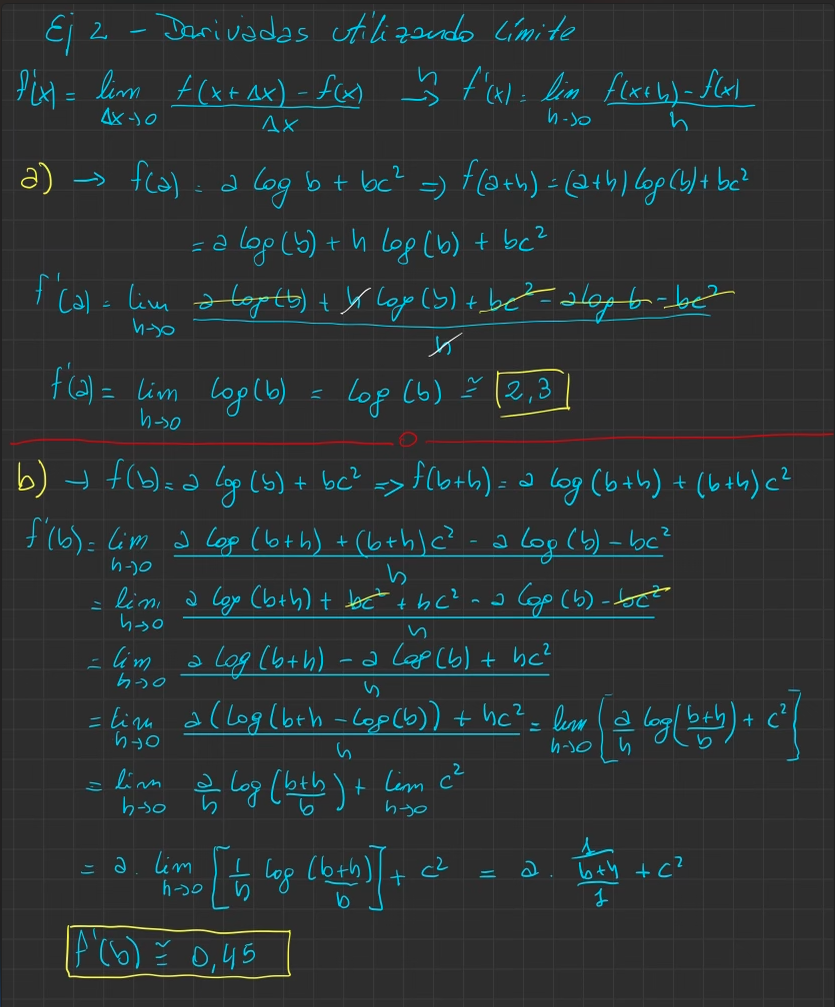 Ej 2 - Derivadas utilizando límite
f'(x) = lim Δx→0 (f(x+Δx) - f(x))/Δx →h f'(x) = lim h→0 (f(x+h) - f(x))/h
a) → f(a) = a log b + bc² => f(a+h) = (a+h) log(b) + bc²
= a log(b) + h log(b) + bc²
f'(a) = lim h→0 (a log(b) + h log(b) + bc² - a log b - bc²)/h
f'(a) = lim h→0 log(b) = log(b) ≅ 2,3
b) → f(b) = a log(b) + bc² => f(b+h) = a log(b+h) + (b+h)c²
f'(b) = lim h→0 (a log(b+h) + (b+h)c² - a log(b) - bc²)/h
= lim h→0 (a log(b+h) + bc² + hc² - a log(b) - bc²)/h
= lim h→0 (a log(b+h) - a log(b) + hc²)/h
= lim h→0 (a(log(b+h - log(b)) + hc²)/h = lim h→0 [a/h log((b+h)/b) + c²]
= lim h→0 a/h log((b+h)/b) + lim h→0 c²
= a. lim h→0 [1/h log((b+h)/b)] + c² = a. (1/(b+h))/1 + c²
f'(b) ≅ 0,45